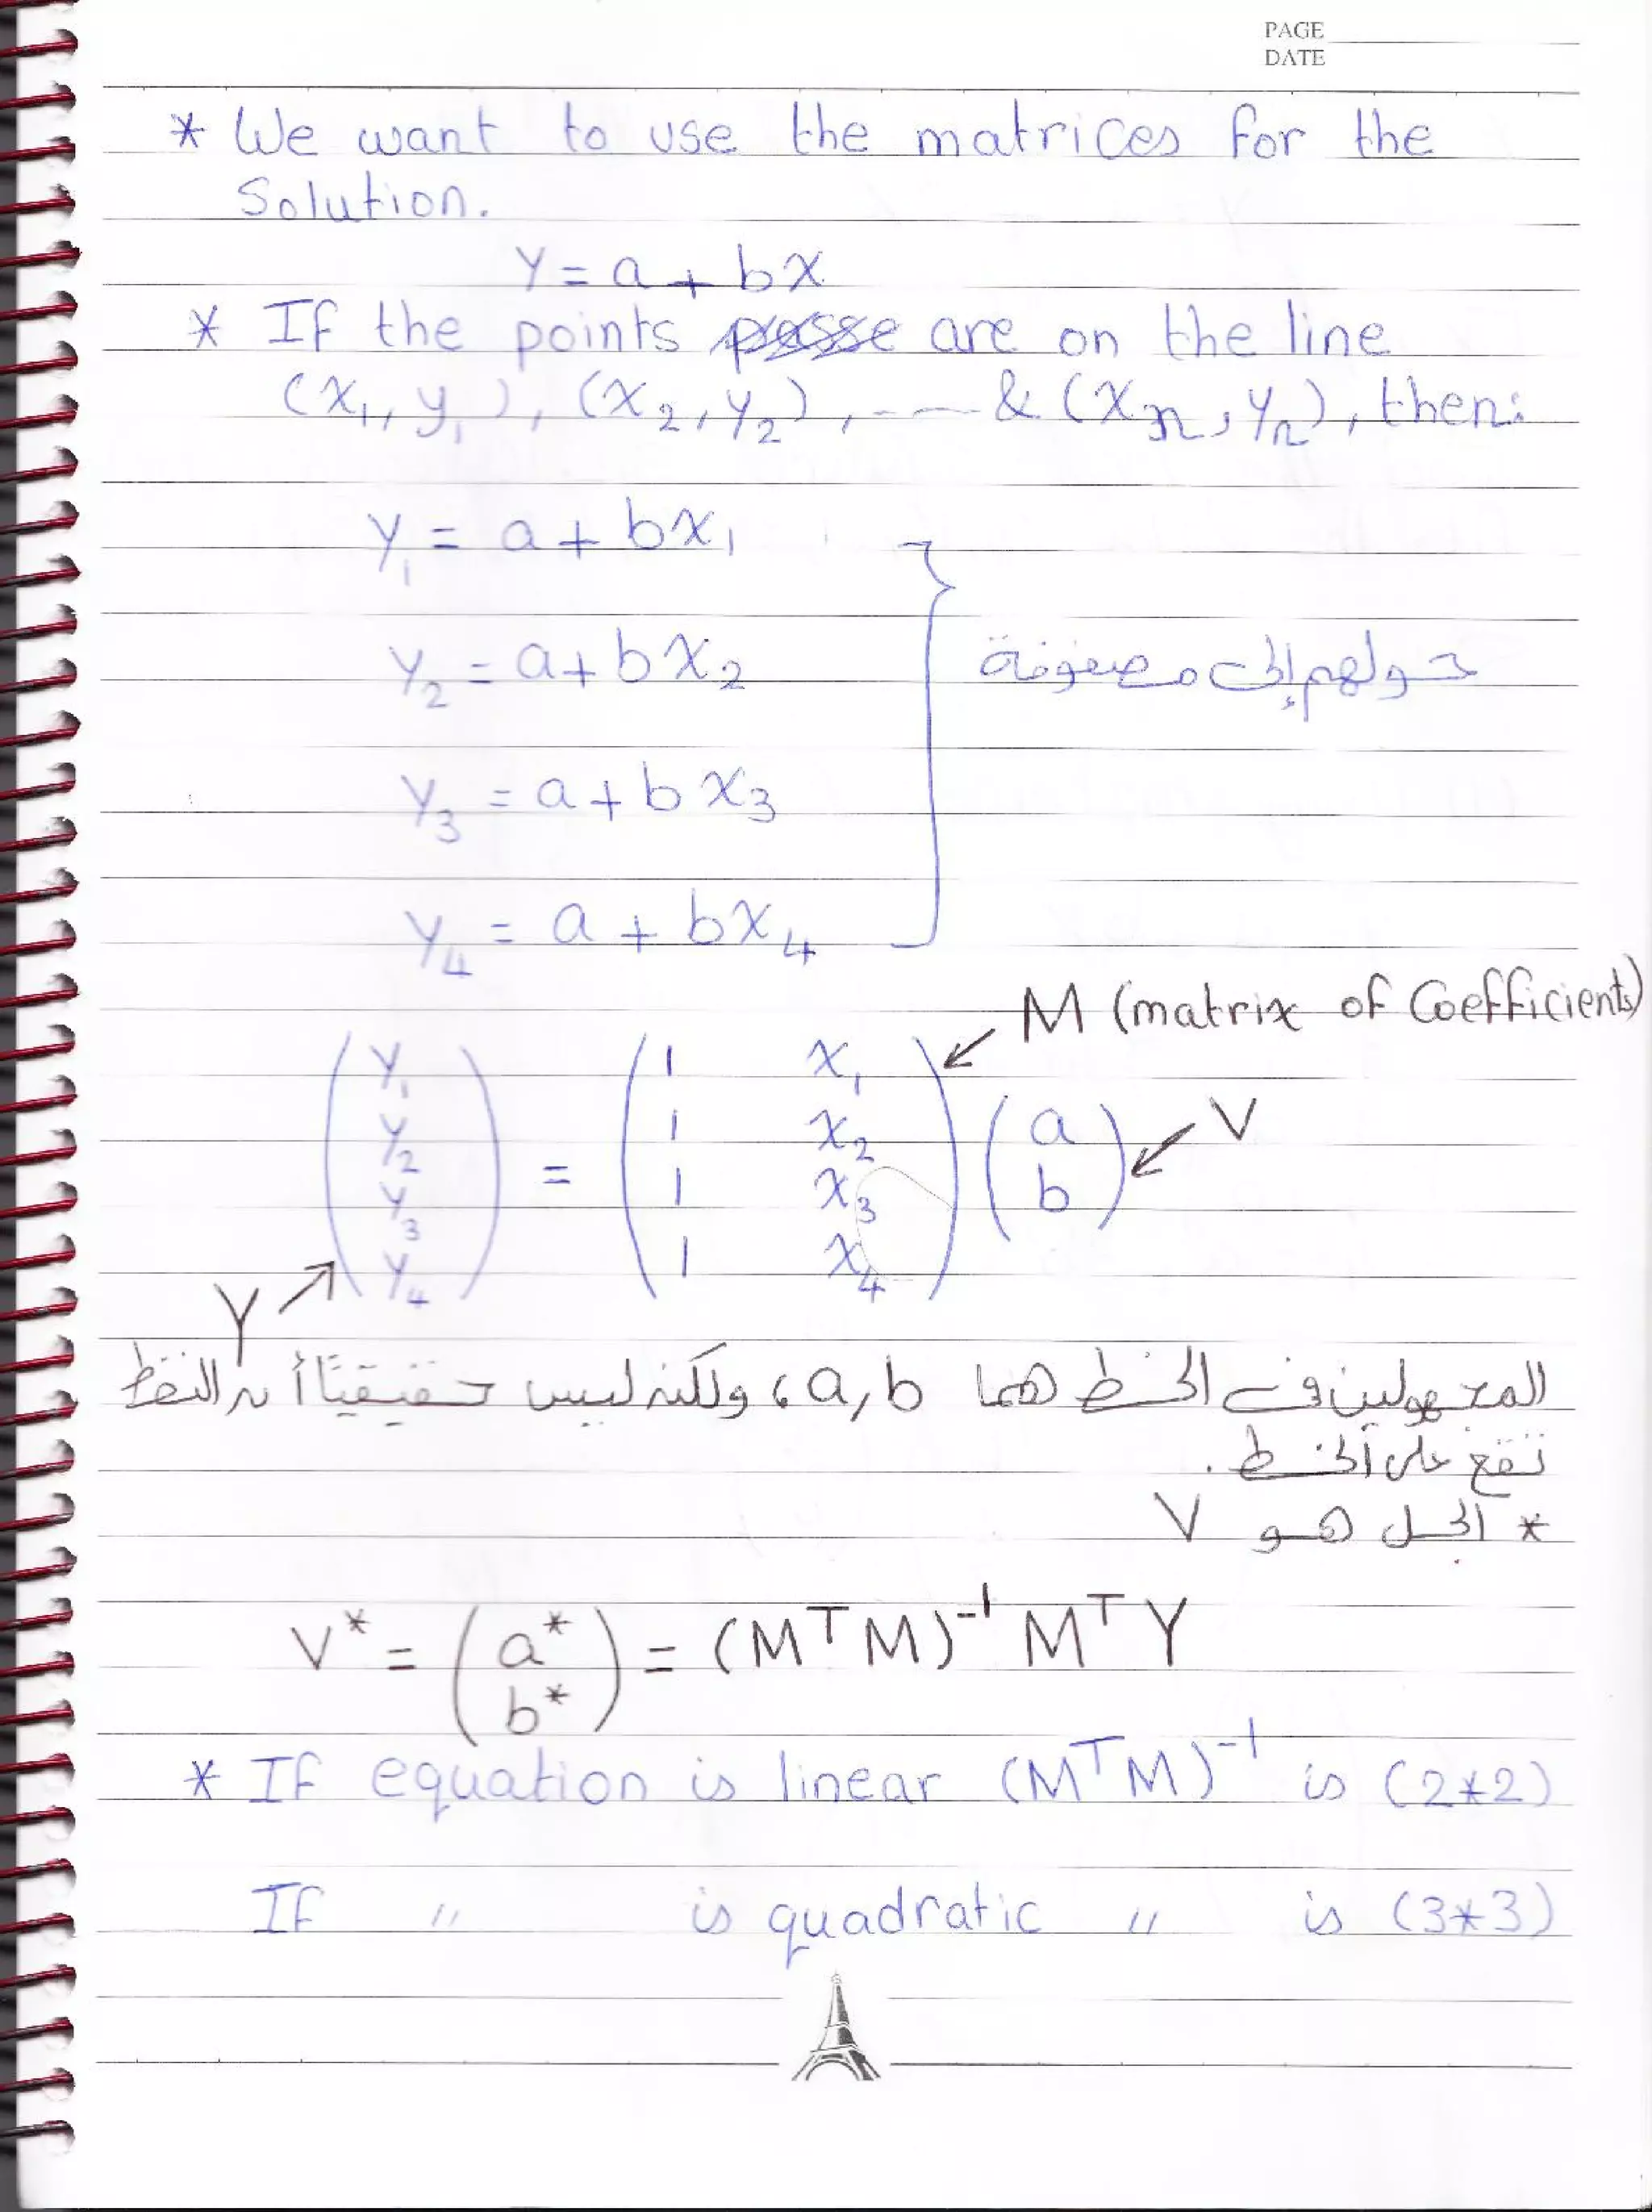 PAGE
DATE
* We want to use the matrices for the
Solution.
Y = a + bx
* If the points are on the line
(x₁, y₁), (x₂, y₂), ---- & (xₙ, yₙ), then:
y₁ = a + bx₁
y₂ = a + bx₂
حولهم إلى مصفوفة
y₃ = a + bx₃
y₄ = a + bx₄
M (matrix of Coefficients)
(y₁ y₂ y₃ y₄) = (1 x₁ 1 x₂ 1 x₃ 1 x₄) (a b) V
Y
المجهولين في الخط هما a, b ، ولكنه ليس حقيقيًا أن النقط
تقع على الخط .
* الحل هو V
V* = (a* b*) = (MᵀM)⁻¹ Mᵀ Y
* If equation is linear (MᵀM)⁻¹ is (2*2)
If " is quadratic " is (3*3)